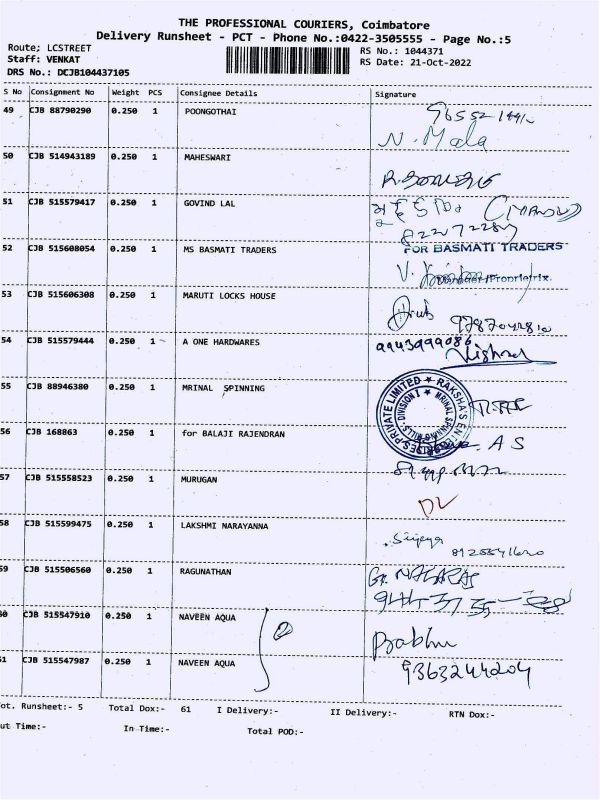 THE PROFESSIONAL COURIERS, Coimbatore
Delivery Runsheet - PCT - Phone No.:0422-3505555 - Page No.:5
Route; LCSTREET
RS No.: 1044371
Staff: VENKAT
RS Date: 21-Oct-2022
DRS No.: DCJB104437105
S No Consignment No Weight PCS Consignee Details Signature
49 CJB 88790290 0.250 1 POONGOTHAI
N. Mala
50 CJB 514943189 0.250 1 MAHESWARI
51 CJB 515579417 0.250 1 GOVIND LAL
52 CJB 515608054 0.250 1 MS BASMATI TRADERS FOR BASMATI TRADERS
Manager/Proprietrix.
53 CJB 515606308 0.250 1 MARUTI LOCKS HOUSE
54 CJB 515579444 0.250 1 A ONE HARDWARES 9943999086
Vishnu
55 CJB 88946380 0.250 1 MRINAL SPINNING
56 CJB 168863 0.250 1 for BALAJI RAJENDRAN A S
57 CJB 515558523 0.250 1 MURUGAN
58 CJB 515599475 0.250 1 LAKSHMI NARAYANNA
59 CJB 515506560 0.250 1 RAGUNATHAN G. NAGARAJ
60 CJB 515547910 0.250 1 NAVEEN AQUA 2 Prabhu
61 CJB 515547987 0.250 1 NAVEEN AQUA 9363244204
ot. Runsheet:- 5 Total Dox:- 61 I Delivery:- II Delivery:- RTN Dox:-
ut Time:- In Time:- Total POD:-